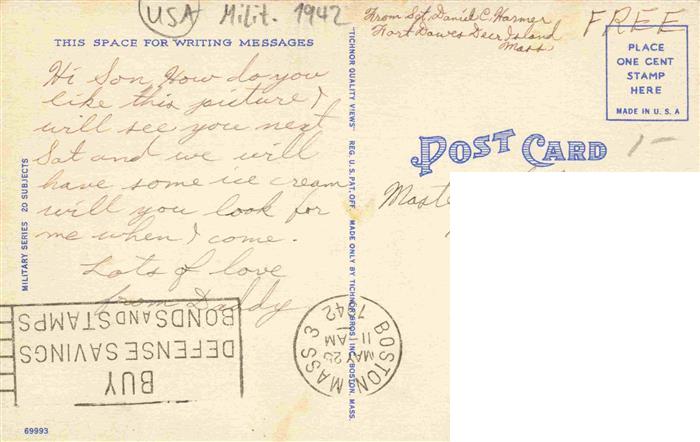 USA Milit. 1942
THIS SPACE FOR WRITING MESSAGES
Hi Son, How do you
like this picture I
will see you next
Sat and we will
have some ice cream
will you look for
me when I come.
Lots of love
from Daddy
MILITARY SERIES 20 SUBJECTS
69993
"TICHNOR QUALITY VIEWS" REG. U. S. PAT. OFF. MADE ONLY BY TICHNOR BROS. INC. BOSTON, MASS.
From Sgt. Daniel C. Harmer
Fort Dawes Deer Island
Mass
FREE
PLACE
ONE CENT
STAMP
HERE
MADE IN U. S. A
POST CARD
1-
Maste
BUY
DEFENSE SAVINGS
BONDS AND STAMPS
BOSTON
MASS 3
MAY 25
11 AM
1942